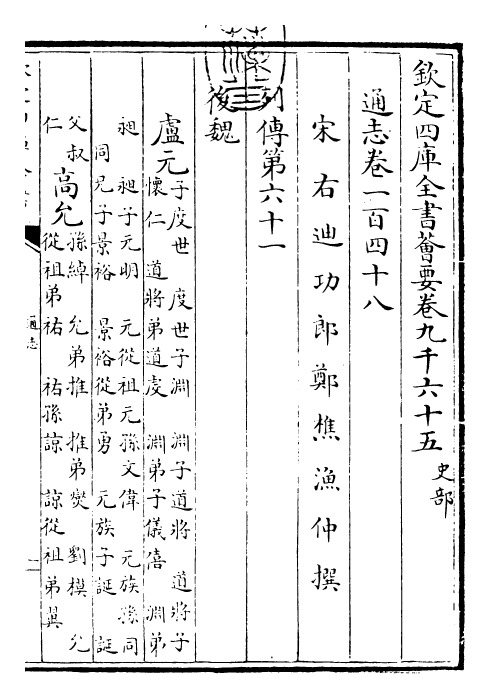 欽定四庫全書薈要卷九千六十五 史部
通志卷一百四十八
宋右迪功郎鄭樵漁仲撰
列傳第六十一
後魏
盧元
子度世 度世子淵 淵子道將 道將子
懷仁 道將弟道虔 淵弟子儀僖 淵弟
昶 昶子元明 元從祖元孫文偉 元族孫同
同兄子景裕 景裕從弟勇 元族子誕 誕
父叔
仁
高允
孫綽 允弟推 推弟燮 劉模 允
從祖弟祐 祐孫諒 諒從祖弟翼
通志
一